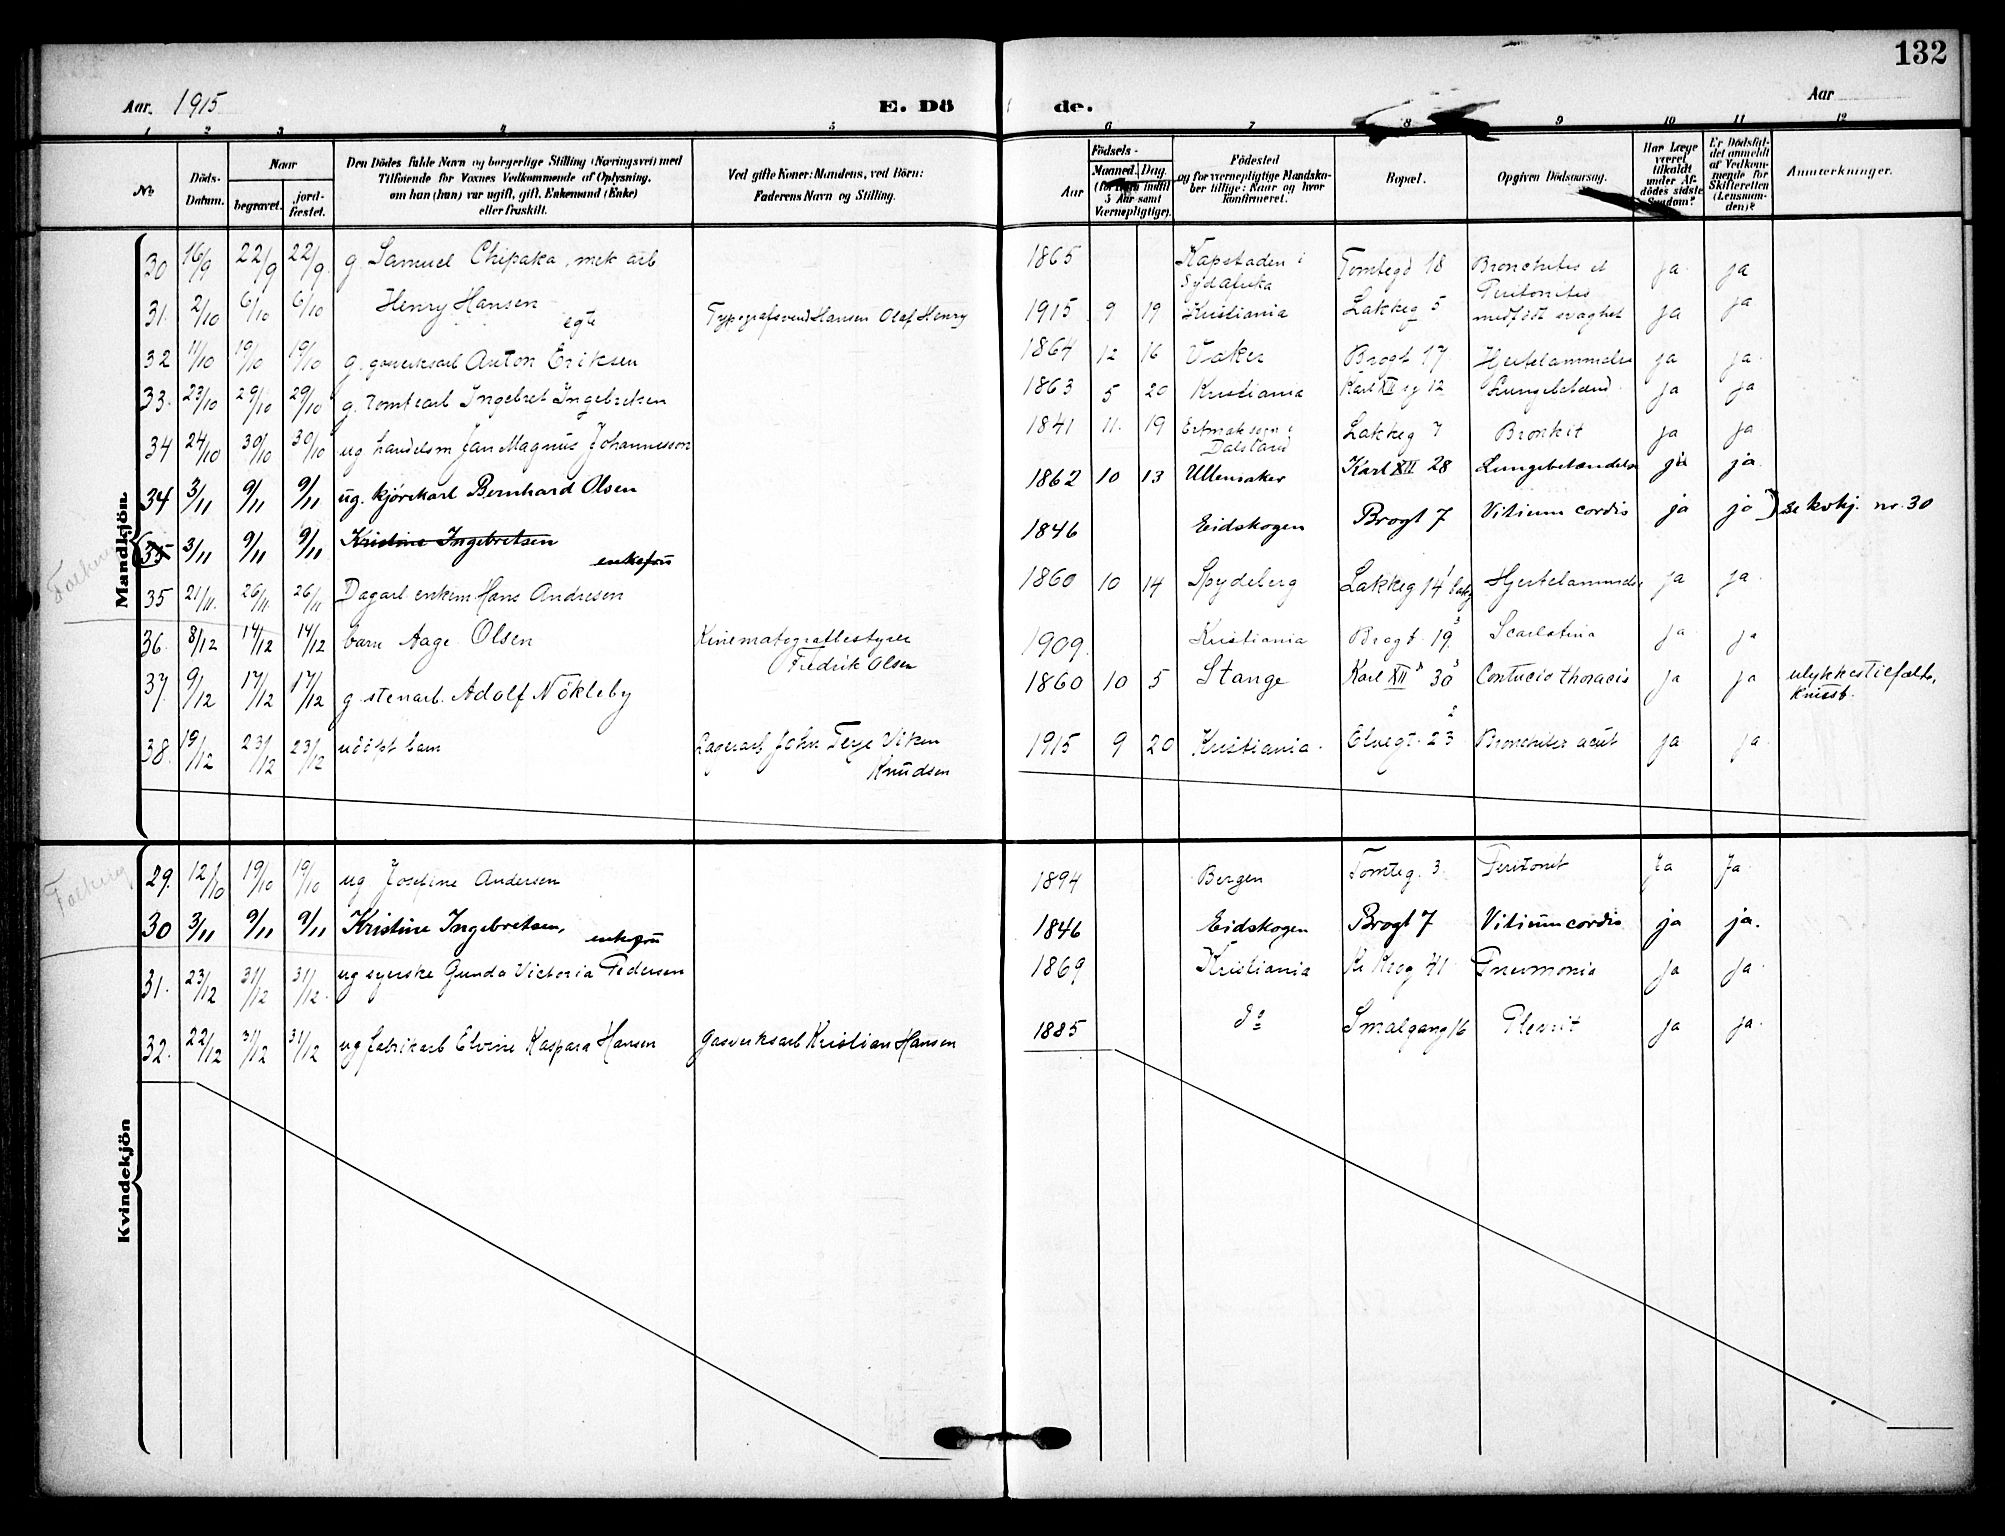 132
Aar 1915 E. Dö de. Aar
1 2 3 4 5 6 7 8 9 10 11 12
No. Döds-Datum. Naar begravet. jord-fæstet. Den Dödes fulde Navn og borgerlige Stilling (Næringsvei) med Tilföiende for Voxnes Vedkommende af Oplysning, om han (hun) var ugift, gift, Enkemand (Enke) eller fraskilt. Ved gifte Koner: Mandens, ved Börn: Faderens Navn og Stilling. Födsels- Aar Maaned. Dag. (for Börn indtil 5 Aar samt Værnepligtige). Födested og for værnepligtige Mandskaber tillige: Naar og hvor konfirmeret. Bopæl. Opgiven Dödsaarsag. Har Læge været tilkaldt under Afdödes sidste Sygdom? Er Dödsfaldet anmeldt af Vedkommende for Skifteretten (Lensmanden)? Anmærkninger.
Mandkjön
30 16/9 22/9 22/9 g. Samuel Chipaka, mek arb 1865 Kapstaden i Sydafrika Tomtegd 18 Bronchites et Peritonites ja ja
31. 2/10 6/10 6/10 Henry Hansen egte Typografsvend Hansen Olaf Henry 1915 9 19 Kristiania Lakkeg 5 medfödt svaghet ja ja
32 11/10 19/10 19/10 g. gasverksarb Anton Eriksen 1864 12 16 V. Aker Brogt 17 Hjertelammelse ja ja
33. 23/10 29/10 29/10 g. tomtearb Ingebret Ingebretsen 1863 5 20 Kristiania Karl XII g 12 Lungebetænd. ja ja
34 24/10 30/10 30/10 ug handelsm Jan Magnus Johannesson 1841 11. 19 Dalsland Lakkeg 7 Bronkit ja ja
34 3/11 9/11 9/11 ug. kjörekarl Bernhard Olsen 1862 10 13 Ullensaker Karl XII 28 Lungebetændelse ja ja
35 3/11 9/11 9/11 Kristine Ingebretsen enkefru 1846 Eidskogen Brogt 7 Vitium cordis ja ja se kvkj. nr. 30
35 21/11. 26/11 26/11 Dagarb enkem Hans Andresen 1860 10 14 Spydeberg Lakkeg 14 Hjertelammelse ja ja
36. 8/12 14/12 14/12 barn Aage Olsen Kinematografbestyrer Fredrik Olsen 1909. Kristiania Brogt. 19 3 Scarlatina ja ja
37. 9/12 17/12 17/12 g. stenarb. Adolf Nökleby 1860 10 5 Stange Karl XII 30 3 Contucio thoracis ja ja ulykkestilfælde,
38. 19/12 23/12 23/12 udöpt barn Lagerarb John Terje Viken Knudsen 1915 9 20 Kristiania. Elvegt. 23 2 Bronchites acut ja ja
Kvindekjön
29. 12/10 19/10 19/10 ug Josefine Andersen 1894 Bergen Tomteg. 3. Peritonit Ja Ja
30 3/11 9/11 9/11 Kristine Ingebretsen, enkefru 1846 Eidskogen Brogt 7 Vitium cordis ja ja.
31. 23/12 31/12 31/12. ug syerske Gunda Victoria Pedersen 1869 Kristiania Kr Krog 41 Pneumonia ja ja
32. 22/12 31/12 31/12 ug fabrikarb Elvine Kaspara Hansen Gasverksarb Kristian Hansen 1885 do Smalgang 16 Plevrit ja ja.